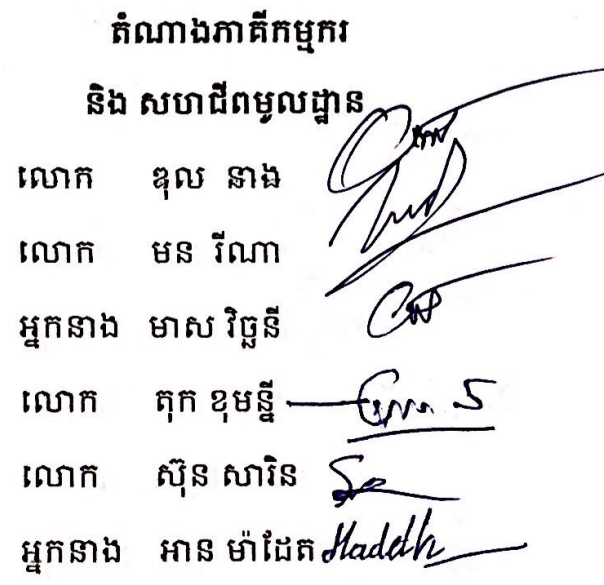 តំណាងភាគីកម្មករ
និង សហជីពមូលដ្ឋាន
លោក ឌុល នាង
លោក មន រីណា
អ្នកនាង មាស វិច្ឆនី
លោក តុក ខុមន្នី
លោក ស៊ុន សារិន
អ្នកនាង អាន ម៉ាដែត